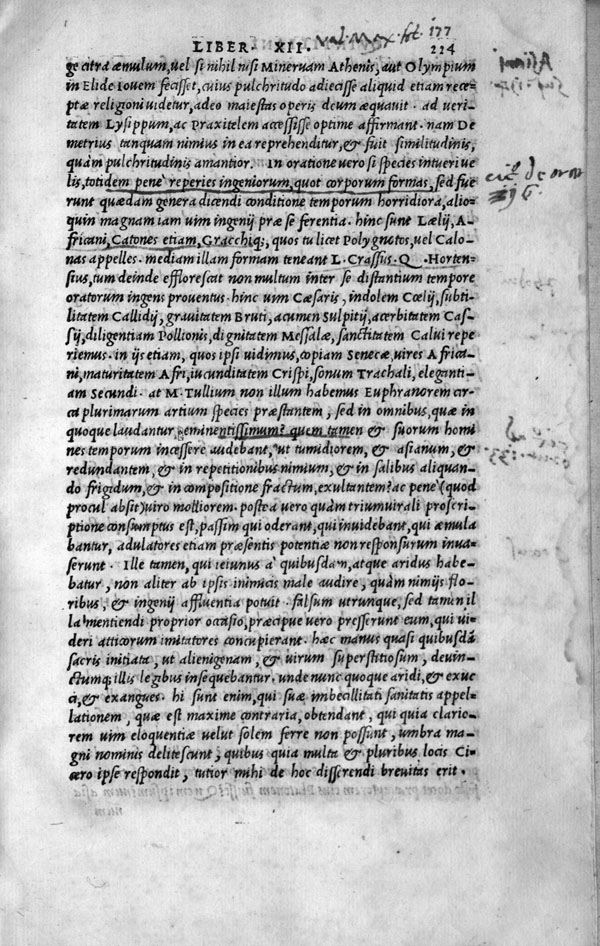 LIBER· XII· 224
177
ge citra æmulum, uel si nihil nisi Mineruam Athenis, aut Olympium
in Elide Iouem fecisset, cuius pulchritudo adiecisse aliquid etiam rece-
ptæ religioni uidetur, adeo maiestas operis deum æquauit · ad ueri
tatem Lysippum, ac Praxitelem accessisse optime affirmant · nam De
metrius tanquam nimius in ea reprehenditur, & fuit similitudinis,
quàm pulchritudinis amantior. In oratione uero si species intueri ue
lis, totidem penè reperies ingeniorum, quot corporum formas, sed fue
runt quædam genera dicendi conditione temporum horridiora, alio-
quin magnam iam uim ingenij præ se ferentia · hinc sunt Lælij, A-
fricani, Catones etiam, Gracchiq;, quos tu licet Polygnotos, uel Calo-
nas appelles· mediam illam formam teneant L· Crassus· Q· Horten-
sius, tum deinde efflorescat non multum inter se distantium tempore
oratorum ingens prouentus· hinc uim Cæsaris, indolem Cœlij, subti-
litatem Callidij, grauitatem Bruti, acumen Sulpitij, acerbitatem Cas-
sij, diligentiam Pollionis, dignitatem Messalæ, sanctitatem Calui repe
riemus· in ijs etiam, quos ipsi uidimus, copiam Senecæ, uires Africa-
ni, maturitatem Afri, iucunditatem Crispi, sonum Trachali, eleganti-
am Secundi· at M·Tullium non illum habemus Euphranorem cir-
ca plurimarum artium species præstantem, sed in omnibus, quæ in
quoque laudantur, eminentissimum? quem tamen & suorum homi
nes temporum incessere audebant, ut tumidiorem, & asianum, &
redundantem, & in repetitionibus nimium, & in salibus aliquan-
do frigidum, & in compositione fractum, exultantem? ac penè (quod
procul absit) uiro molliorem· postea uero quàm triumuirali proscri-
ptione consumptus est, passim qui oderant, qui inuidebant, qui æmula
bantur, adulatores etiam præsentis potentiæ non responsurum inua-
serunt · Ille tamen, qui ieiunus à quibusdam, atque aridus habe-
batur, non aliter ab ipsis inimicis male audire, quàm nimijs flo-
ribus, & ingenij affluentia potuit · falsum utrunque, sed tamen il
la mentiendi proprior occasio, præcipue uero presserunt eum, qui ui-
deri atticorum imitatores concupierant· hæc manus quasi quibusdã
sacris initiata, ut alienigenam, & uirum superstitiosum, deuin-
ctumq; illis legibus insequebantur· unde nunc quoque aridi, & exuc
ci, & exangues· hi sunt enim, qui suæ imbecillitati sanitatis appel-
lationem, quæ est maxime contraria, obtendant, qui quia clario-
rem uim eloquentiæ uelut solem ferre non possunt, umbra ma-
gni nominis delitescunt, quibus quia multa & pluribus locis Ci-
cero ipse respondit, tutior mihi de hoc disserendi breuitas erit·